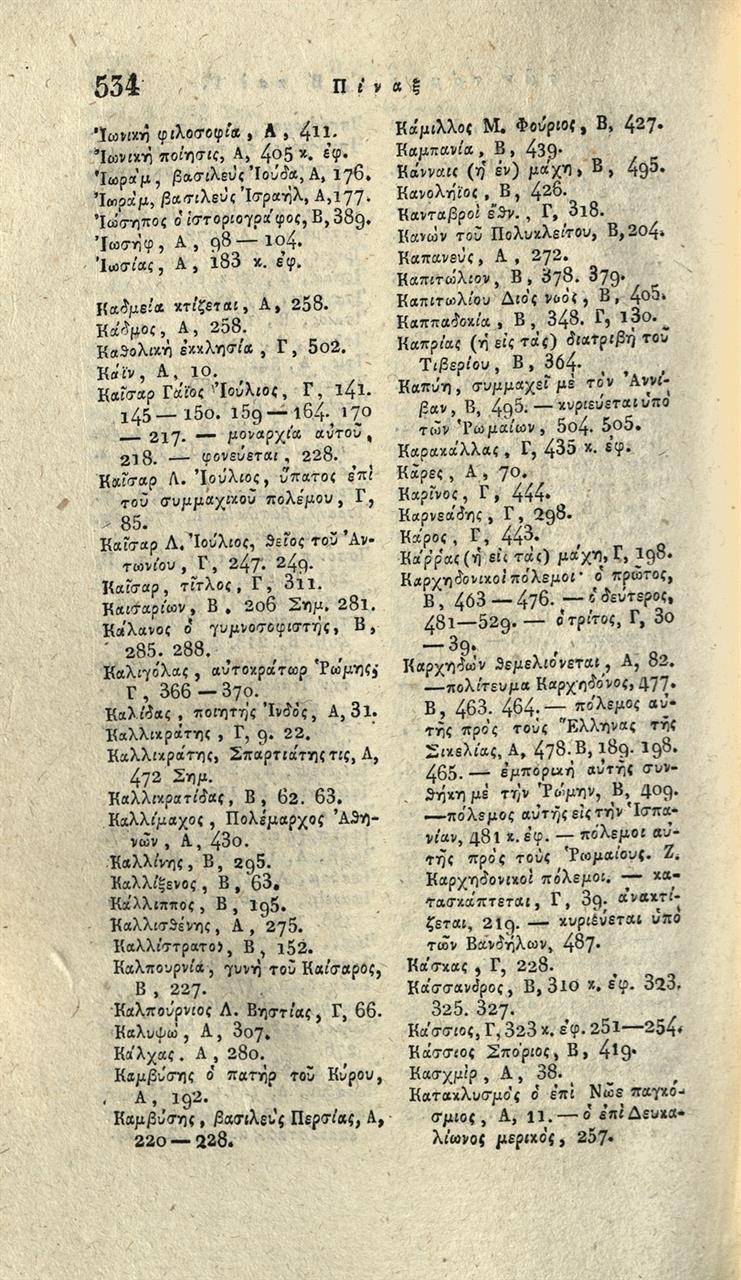 534
Πίναξ
Ἰωνικὴ φιλοσοφία, Α, 411.
Ἰωνικὴ ποίησις, Α, 405 κ. ἐφ.
Ἰωράμ, βασιλεὺς Ἰούδα, Α, 176.
Ἰωράμ, βασιλεὺς Ἰσραήλ, Α, 177.
Ἰώσηπος ὁ ἱστοριογράφος, Β, 389.
Ἰωσήφ, Α, 98 — 104.
Ἰωσίας, Α, 183 κ. ἐφ.
Καδμεία κτίζεται, Α, 258.
Κάδμος, Α, 258.
Καθολικὴ ἐκκλησία, Γ, 502.
Κάϊν, Α, 10.
Καῖσαρ Γάϊος Ἰούλιος, Γ, 141.
145 — 150. 159 — 164. 170
— 217. — μοναρχία αὐτοῦ,
218. — φονεύεται, 228.
Καῖσαρ Λ. Ἰούλιος, ὕπατος ἐπὶ
τοῦ συμμαχικοῦ πολέμου, Γ,
85.
Καῖσαρ Λ. Ἰούλιος, θεῖος τοῦ Ἀν-
τωνίου, Γ, 247. 249.
Καῖσαρ, τῖτλος, Γ, 311.
Καισαρίων, Β. 206 Σημ. 281.
Κάλανος ὁ γυμνοσοφιστής, Β,
285. 288.
Καλιγόλας, αὐτοκράτωρ Ῥώμης,
Γ, 366 — 370.
Καλίδας, ποιητὴς Ἰνδός, Α, 31.
Καλλικράτης, Γ, 9. 22.
Καλλικράτης, Σπαρτιάτης τις, Α,
472 Σημ.
Καλλικρατίδας, Β, 62. 63.
Καλλίμαχος, Πολέμαρχος Ἀθη-
νῶν, Α, 430.
Καλλίνης, Β, 295.
Καλλίξενος, Β, 63.
Κάλλιππος, Β, 195.
Καλλισθένης, Α, 275.
Καλλίστρατος, Β, 152.
Καλπουρνία, γυνὴ τοῦ Καίσαρος,
Β, 227.
Καλπούρνιος Λ. Βηστίας, Γ, 66.
Καλυψώ, Α, 307.
Κάλχας. Α, 280.
Καμβύσης ὁ πατὴρ τοῦ Κύρου,
Α, 192.
Καμβύσης, βασιλεὺς Περσίας, Α,
220 — 228.
Κάμιλλος Μ. Φούριος, Β, 427.
Καμπανία, Β, 439.
Κάνναις (ἡ ἐν) μάχη, Β, 495.
Κανολήϊος, Β, 426.
Κανταβροὶ ἔθν., Γ, 318.
Κανὼν τοῦ Πολυκλείτου, Β, 204.
Καπανεύς, Α, 272.
Καπιτώλιον, Β, 378. 379.
Καπιτωλίου Διὸς ναός, Β, 405.
Καππαδοκία, Β, 348. Γ, 130.
Καπρίας (ἡ εἰς τὰς) διατριβὴ τοῦ
Τιβερίου, Β, 364.
Καπύη, συμμαχεῖ μὲ τὸν Ἀννί-
βαν, Β, 495. — κυριεύεται ὑπὸ
τῶν Ῥωμαίων, 504. 505.
Καρακάλλας, Γ, 435 κ. ἐφ.
Κᾶρες, Α, 70.
Καρῖνος, Γ, 444.
Καρνεάδης, Γ, 298.
Κάρος, Γ, 443.
Κάῤῥας (ἡ εἰς τὰς) μάχη, Γ, 198.
Καρχηδονικοὶ πόλεμοι· ὁ πρῶτος,
Β, 463 — 476. — ὁ δεύτερος,
481 — 529. — ὁ τρίτος, Γ, 30
— 39.
Καρχηδὼν θεμελιόνεται, Α, 82.
— πολίτευμα Καρχηδόνος, 477.
Β, 463. 464. — πόλεμος αὐ-
τῆς πρὸς τοὺς Ἕλληνας τῆς
Σικελίας, Α, 478. Β, 189. 198.
465. — ἐμπορικὴ αὐτῆς συν-
θήκη μὲ τὴν Ῥώμην, Β, 409.
— πόλεμος αὐτῆς εἰς τὴν Ἱσπα-
νίαν, 481 κ. ἐφ. — πόλεμοι αὐ-
τῆς πρὸς τοὺς Ῥωμαίους. Ζ.
Καρχηδονικοὶ πόλεμοι. — κα-
τασκάπτεται, Γ, 39. ἀνακτί-
ζεται, 219. — κυριεύεται ὑπὸ
τῶν Βανδήλων, 487.
Κάσκας, Γ, 228.
Κάσσανδρος, Β, 310 κ. ἐφ. 323.
325. 327.
Κάσσιος, Γ, 323 κ. ἐφ. 251—254.
Κάσσιος Σπόριος, Β, 419.
Κασχμίρ, Α, 38.
Κατακλυσμὸς ὁ ἐπὶ Νῶε παγκό-
σμιος, Α, 11. — ὁ ἐπὶ Δευκα-
λίωνος μερικός, 257.